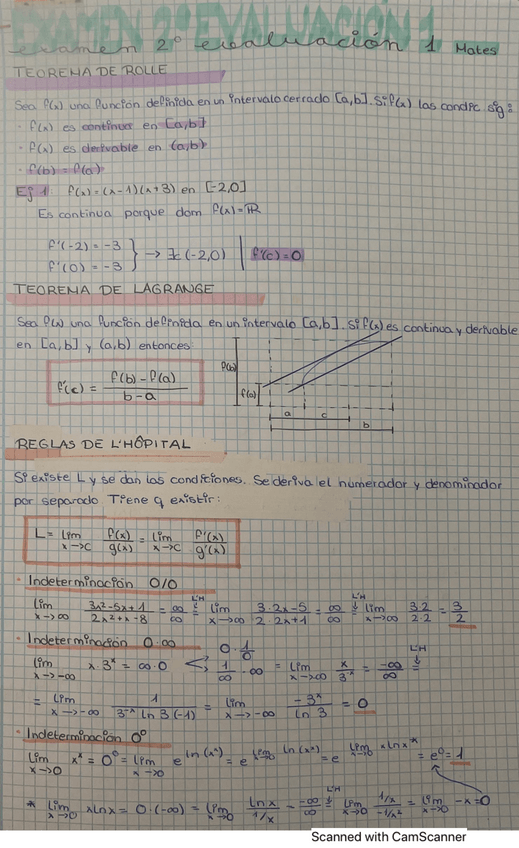 EXAMEN 2º EVALUACIÓN 1
examen 2º evaluación 1 Mates
TEOREMA DE ROLLE
Sea f(x) una función definida en un intervalo cerrado [a,b]. Si f(x) las condic sig:
· f(x) es continua en [a,b]
· f(x) es derivable en (a,b)
· f(b) = f(a)
Ej 1. f(x) = (x-1)(x+3) en [-2,0]
Es continua porque dom f(x) = ℝ
f'(-2) = -3
f'(0) = -3 } → (-2,0) | f'(c) = 0
TEOREMA DE LAGRANGE
Sea f(x) una función definida en un intervalo [a,b]. Si f(x) es continua y derivable
en [a,b] y (a,b) entonces
f'(c) = (f(b) - f(a)) / (b - a)
f(b)
f(a)
a c
b
REGLAS DE L'HÔPITAL
Si existe L y se dan las condiciones. Se deriva el numerador y denominador
por separado Tiene q existir:
L = lim x→c f(x)/g(x) = lim x→c f'(x)/g'(x)
· Indeterminación 0/0
lim x→∞ (3x²-5x+1)/(2x²+x-8) = ∞/∞ =(L'H) lim x→∞ (3·2x-5)/(2·2x+1) = ∞/∞ =(L'H) lim x→∞ (3·2)/(2·2) = 3/2
· Indeterminación 0·∞
lim x→-∞ x·3ˣ = ∞·0 < 0·1/0 1/∞·∞ = lim x→∞ x/3⁻ˣ = -∞/∞ =(L'H)
= lim x→-∞ 1/(3⁻ˣ ln 3 (-1)) = lim x→-∞ -3ˣ/ln 3 = 0
· Indeterminación 0⁰
lim x→0 xˣ = 0⁰ = lim x→0 e^ln(xˣ) = e^lim x→0 ln(xˣ) = e^lim x→0 x ln x * = e⁰ = 1
* lim x→0 x ln x = 0·(-∞) = lim x→0 ln x/(1/x) = -∞/∞ =(L'H) lim x→0 (1/x)/(-1/x²) = lim x→0 -x = 0
Scanned with CamScanner